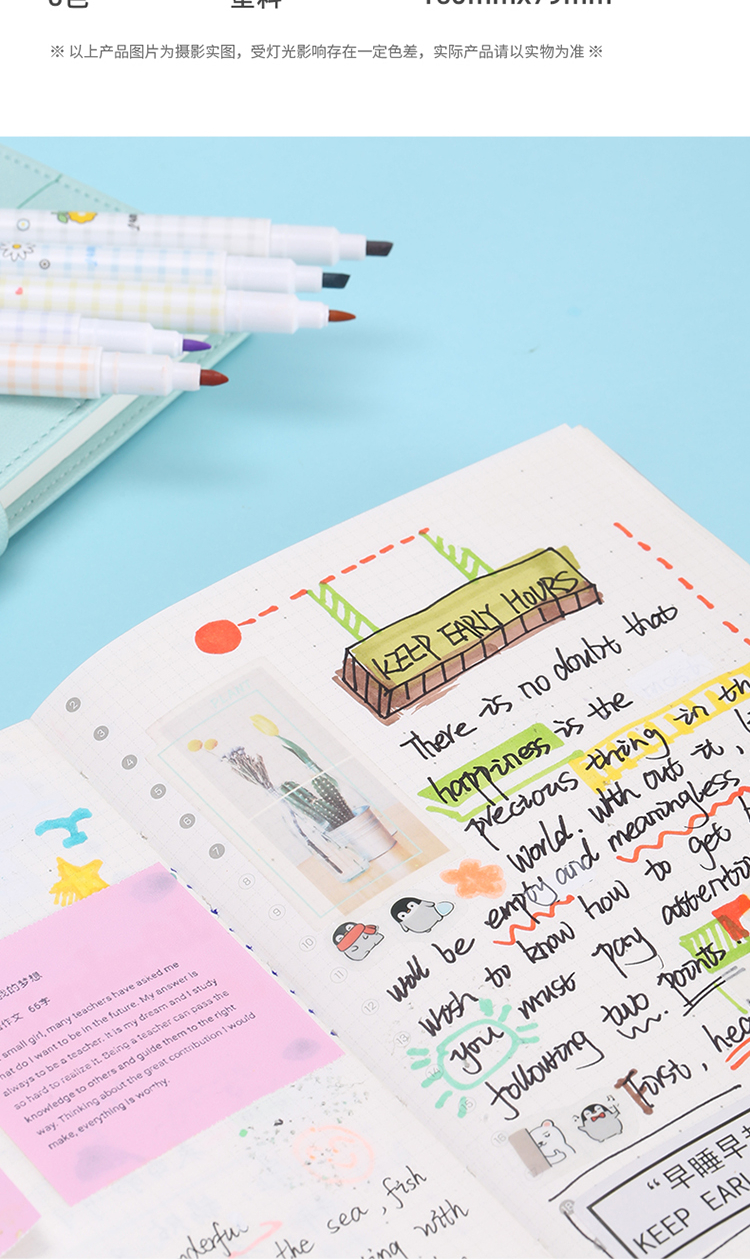 ※ 以上产品图片为摄影实图，受灯光影响存在一定色差，实际产品请以实物为准 ※
KEEP EARLY HOURS
There is no doubt that
happiness is the
precious thing in th
World. With out it,
will be empty and meaningless
Wish to know how to get
you must pay attention
following two points.
First, hea
"早睡早
KEEP EARL
2
3
4
5
6
7
8
9
10
11
12
13
我的梦想
作文 66字
small girl, many teachers have asked me
hat do I want to be in the future. My answer is
always to be a teacher. It is my dream and I study
so hard to realize it. Being a teacher can pass the
knowledge to others and guide them to the right
way. Thinking about the great contribution I would
make, everything is worthy.
nderful
the sea, fish
ing with